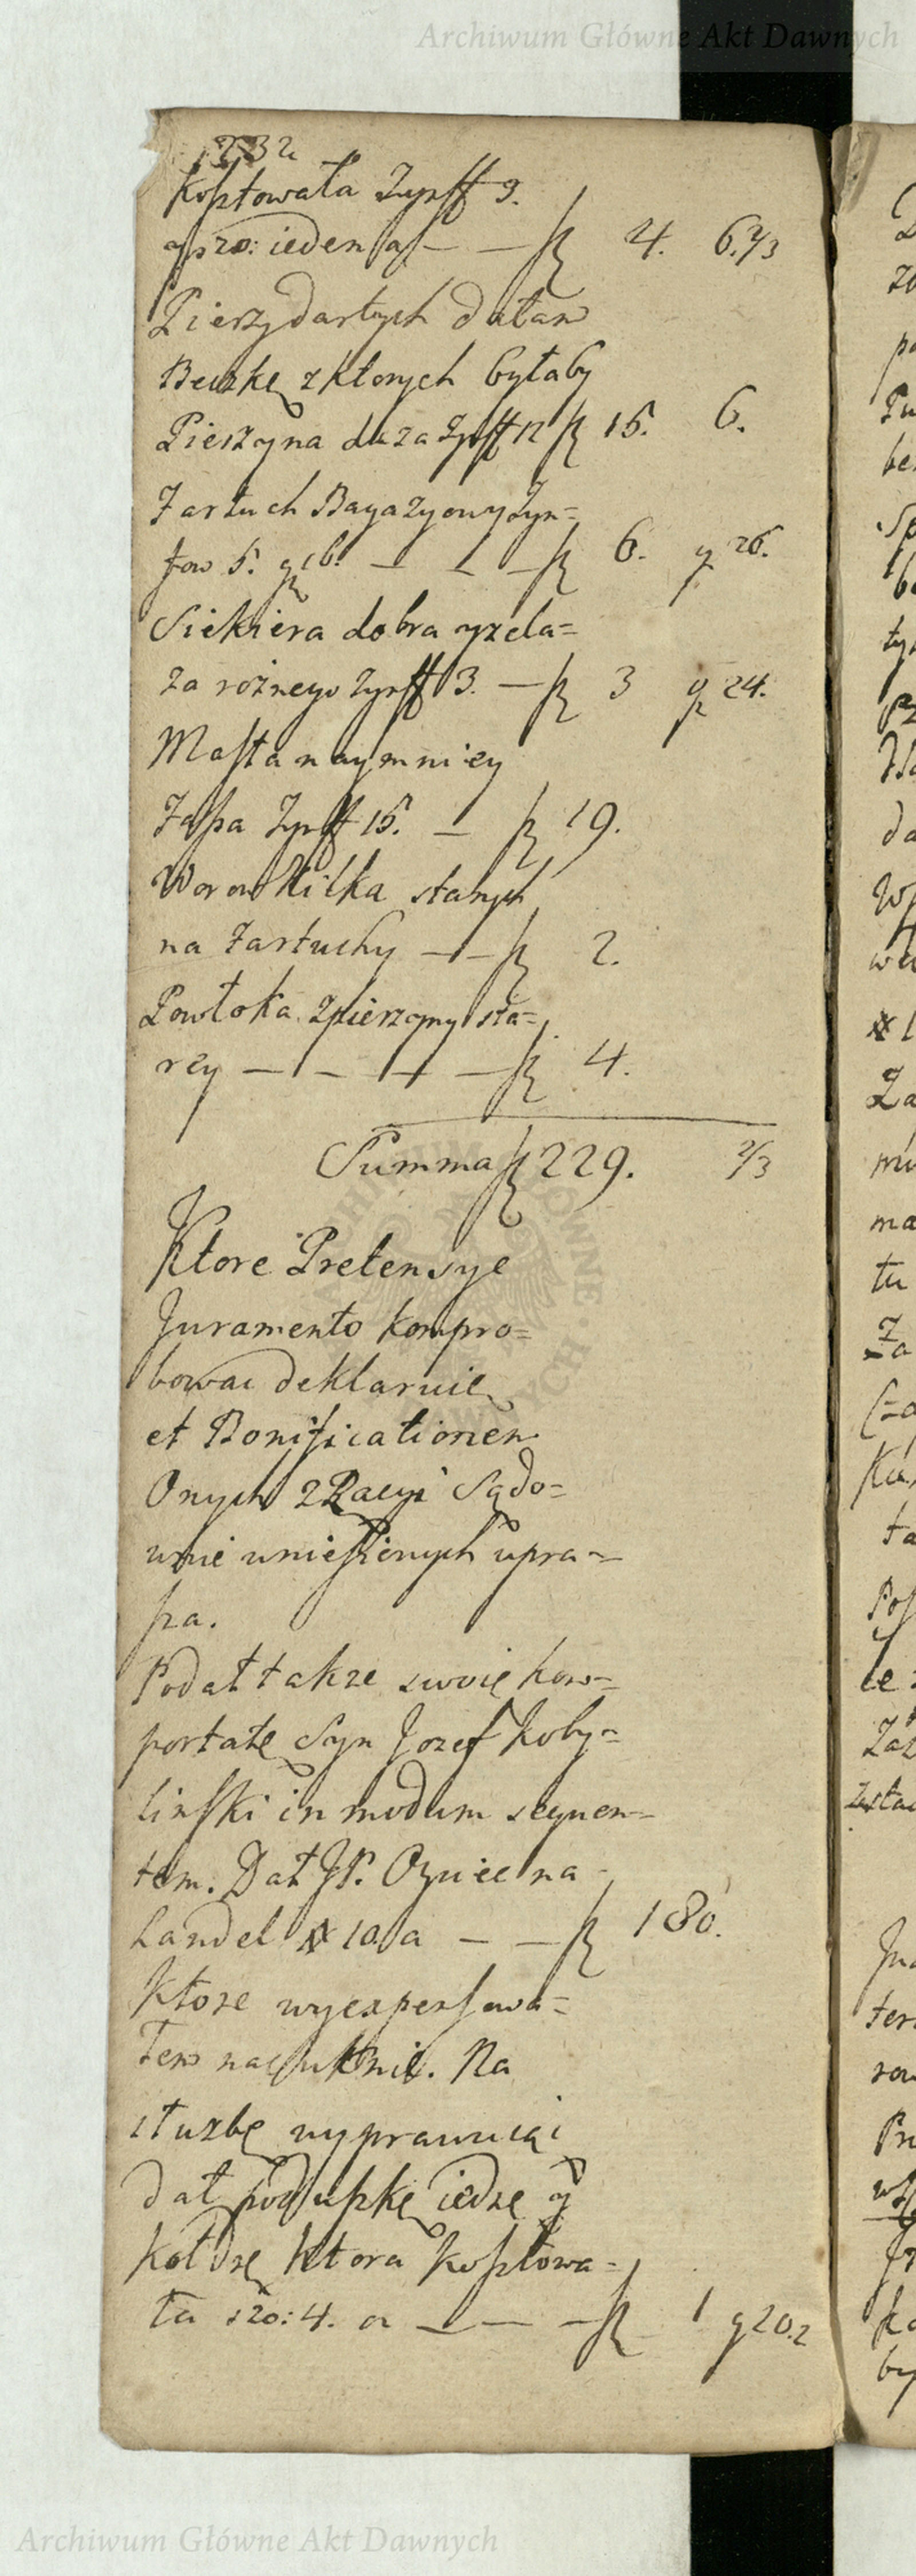 Archiwum Główne Akt Dawnych
232
kosztowała Tynff 3.
y szo: ieden a — — zł 4. 6.2/3
Pierzy dartych dałam
Beczkę z ktorych byłaby
Pierzyna duża Tynff 12 zł 15. 6.
Fartuch Bagazyowy Tyn=
fow 5. gr 16. — — — zł 6. gr 26.
Siekiera dobra y zela=
za roznego Tynff 3. — zł 3 gr 24.
Masła naymniey
Faska Tynff 15. — zł 19.
Worow kilka starych
na Fartuchy — — zł 2.
Powłoka z pierzyny sta=
rey — — — — zł 4.
Summa zł 229. 2/3
Ktore Pretensye
Juramento kompro=
bowac deklaruie
et Bonificationem
Onych z Racyi Sądo=
wnie wniesionych upra=
sza.
Podał takze swoię kom=
portatę Syn Jozef Koby=
linski in modum sequen=
tem. Dał JP. Oyciec na
handel 10. a — — zł 180.
Ktore wyexpensowa=
łem na suknie. Na
słuzbę wyprawuiąc
dał poduszkę iednę y
kołdrę ktora kosztowa=
ła szo: 4. a — — — zł 1 gr 20.2
Archiwum Główne Akt Dawnych